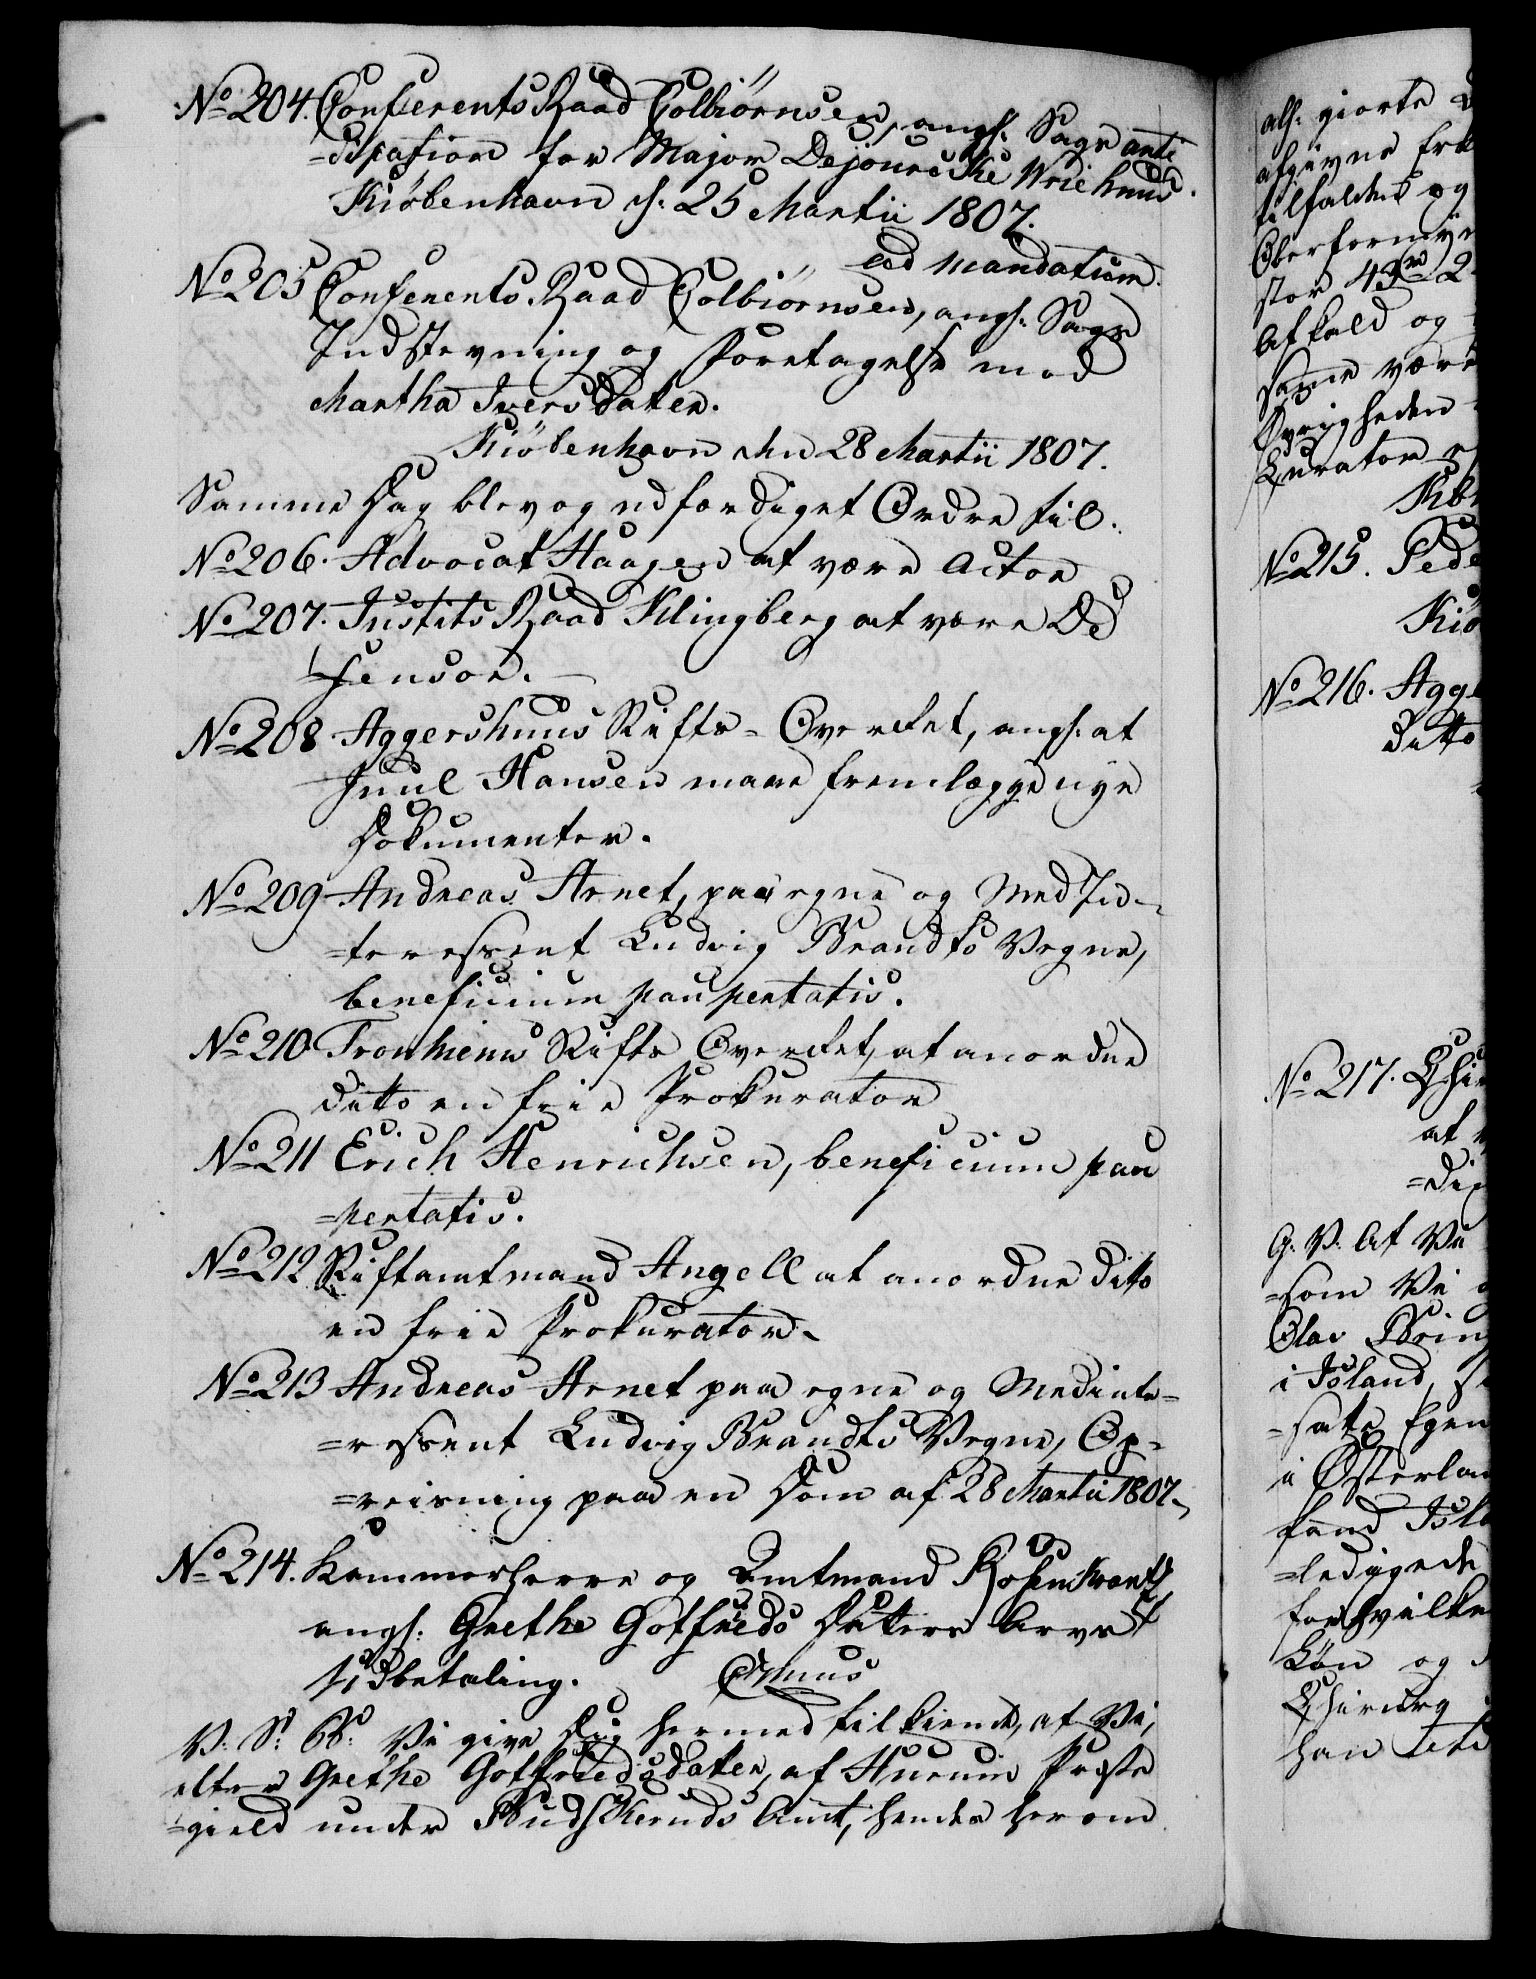 No 204. Conferents Raad Colbiørnsen, angl. Sags anti
=cipation for Major Dejoureske Vriehuus.
Kiöbenhavn d. 25 Martii 1807.
ad mandatum.
No 205 Conferents Raad Colbiörnsen, angl. Sags
Indstevning og Foretagelse mod
Martha Iversdatter.
Kiöbenhavn den 28 Martii 1807.
Samme Dag blev og udfærdiget Ordre til.
No 206. Advocat Haagen at være Actor
No 207. Justits Raad Klingberg at være De
fensor.
No 208 Aggershuus Stifts-Overret, angl. at
Juul Hansen maae fremlægge nye
Dokumenter.
No 209 Andreas Arnet, paa egne og Med In-
=teressent Ludvig Brandts Vegne,
beneficium paupertatis.
No 210 Tronhiems Stifts Overret, at anordne
ditto en frie Prokurator
No 211 Erich Henrichsen, beneficium pau
=pertatis.
No 212 Stiftamtmand Angell at anordne ditto
en frie Prokurator.
No 213 Andreas Arnet paa egne og Medinte=
=ressent Ludvig Brandts Vegne, Op=
=reisning paa en Dom af 28 Martii 1807.
No 214. Kammerherre og Amtmand Rosenkrantz
angl. Grethe Gotfreds Datters Arvs
Udbetaling.
V. S. B. Vi give Dig hermed tilkiende, at Vi,
efter Grethe Gotfriedsdatter, af Hurum Præste
=gield under Budskeruds Amt, hendes herom
als. giorte
afgivne Erk
tilfaldt og
Oberformyn
stor 43 rd 2
Afkald og
samme være
Øvrigheden
Curator
Kbh
No 215. Pede
Kiø
No 216. Agge
ditto
No 217. Chir
at
=dig
G. V. At Vi
=som Vi
Olav Bring
i Island,
=satte Egen
i Østerlan
fend Isl
=ledigede
for hvilke
Løn og
Chirurg
han